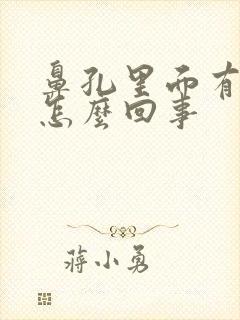 鼻孔里而有
怎麼回事
蔣小勇